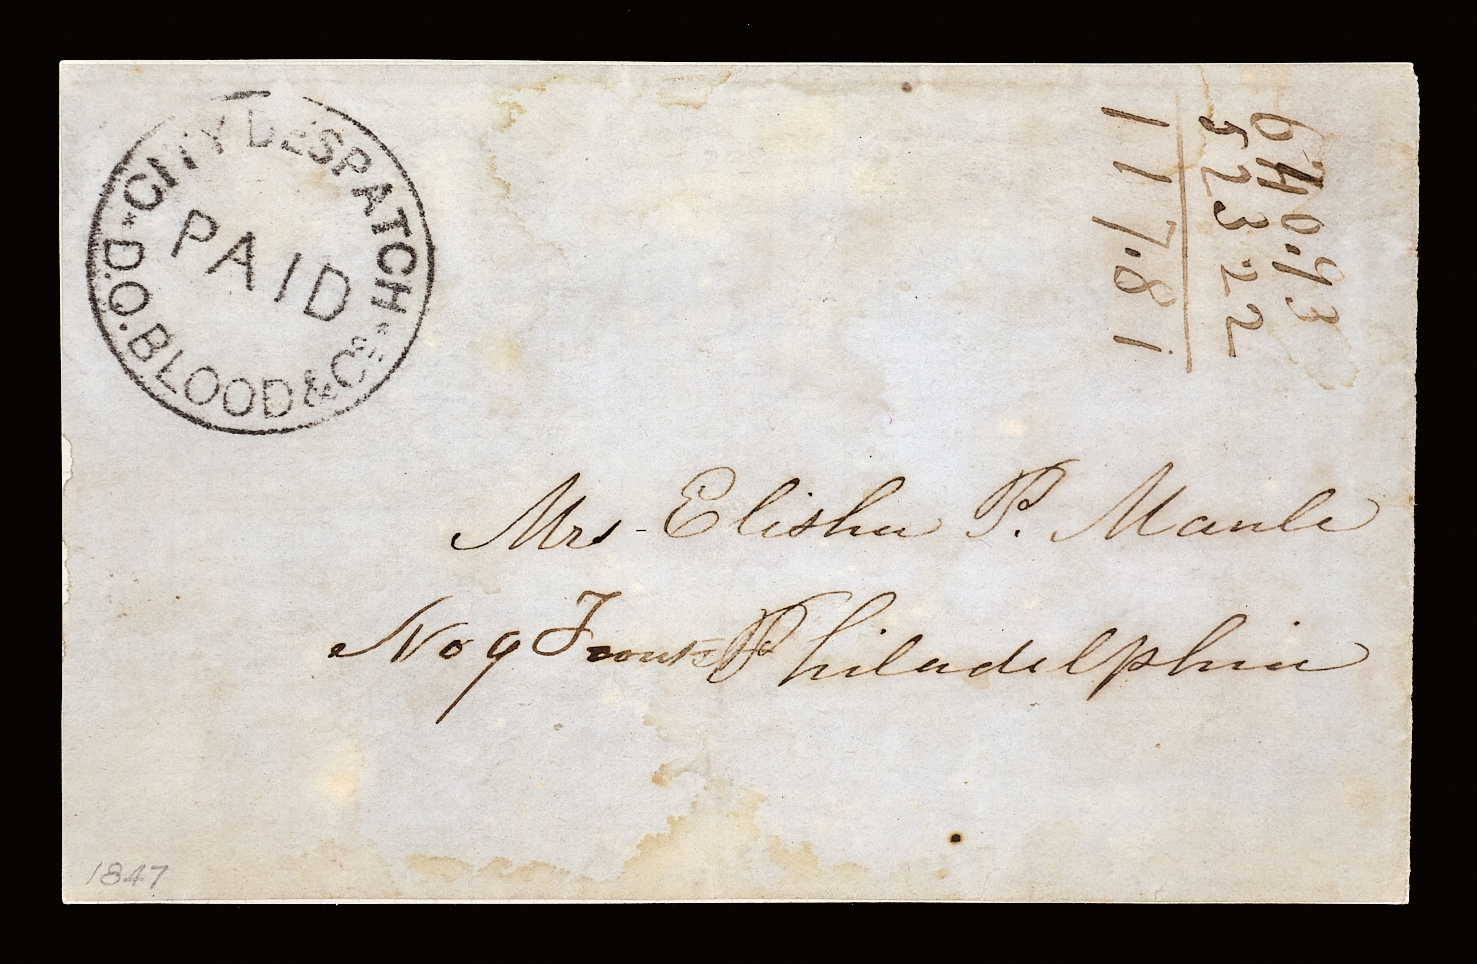 CITY DESPATCH
PAID
D.O. BLOOD & Cos
640.93
523.22
117.81
Mrs Elisha P. Maule
No 9 Front Philadelphia
1847